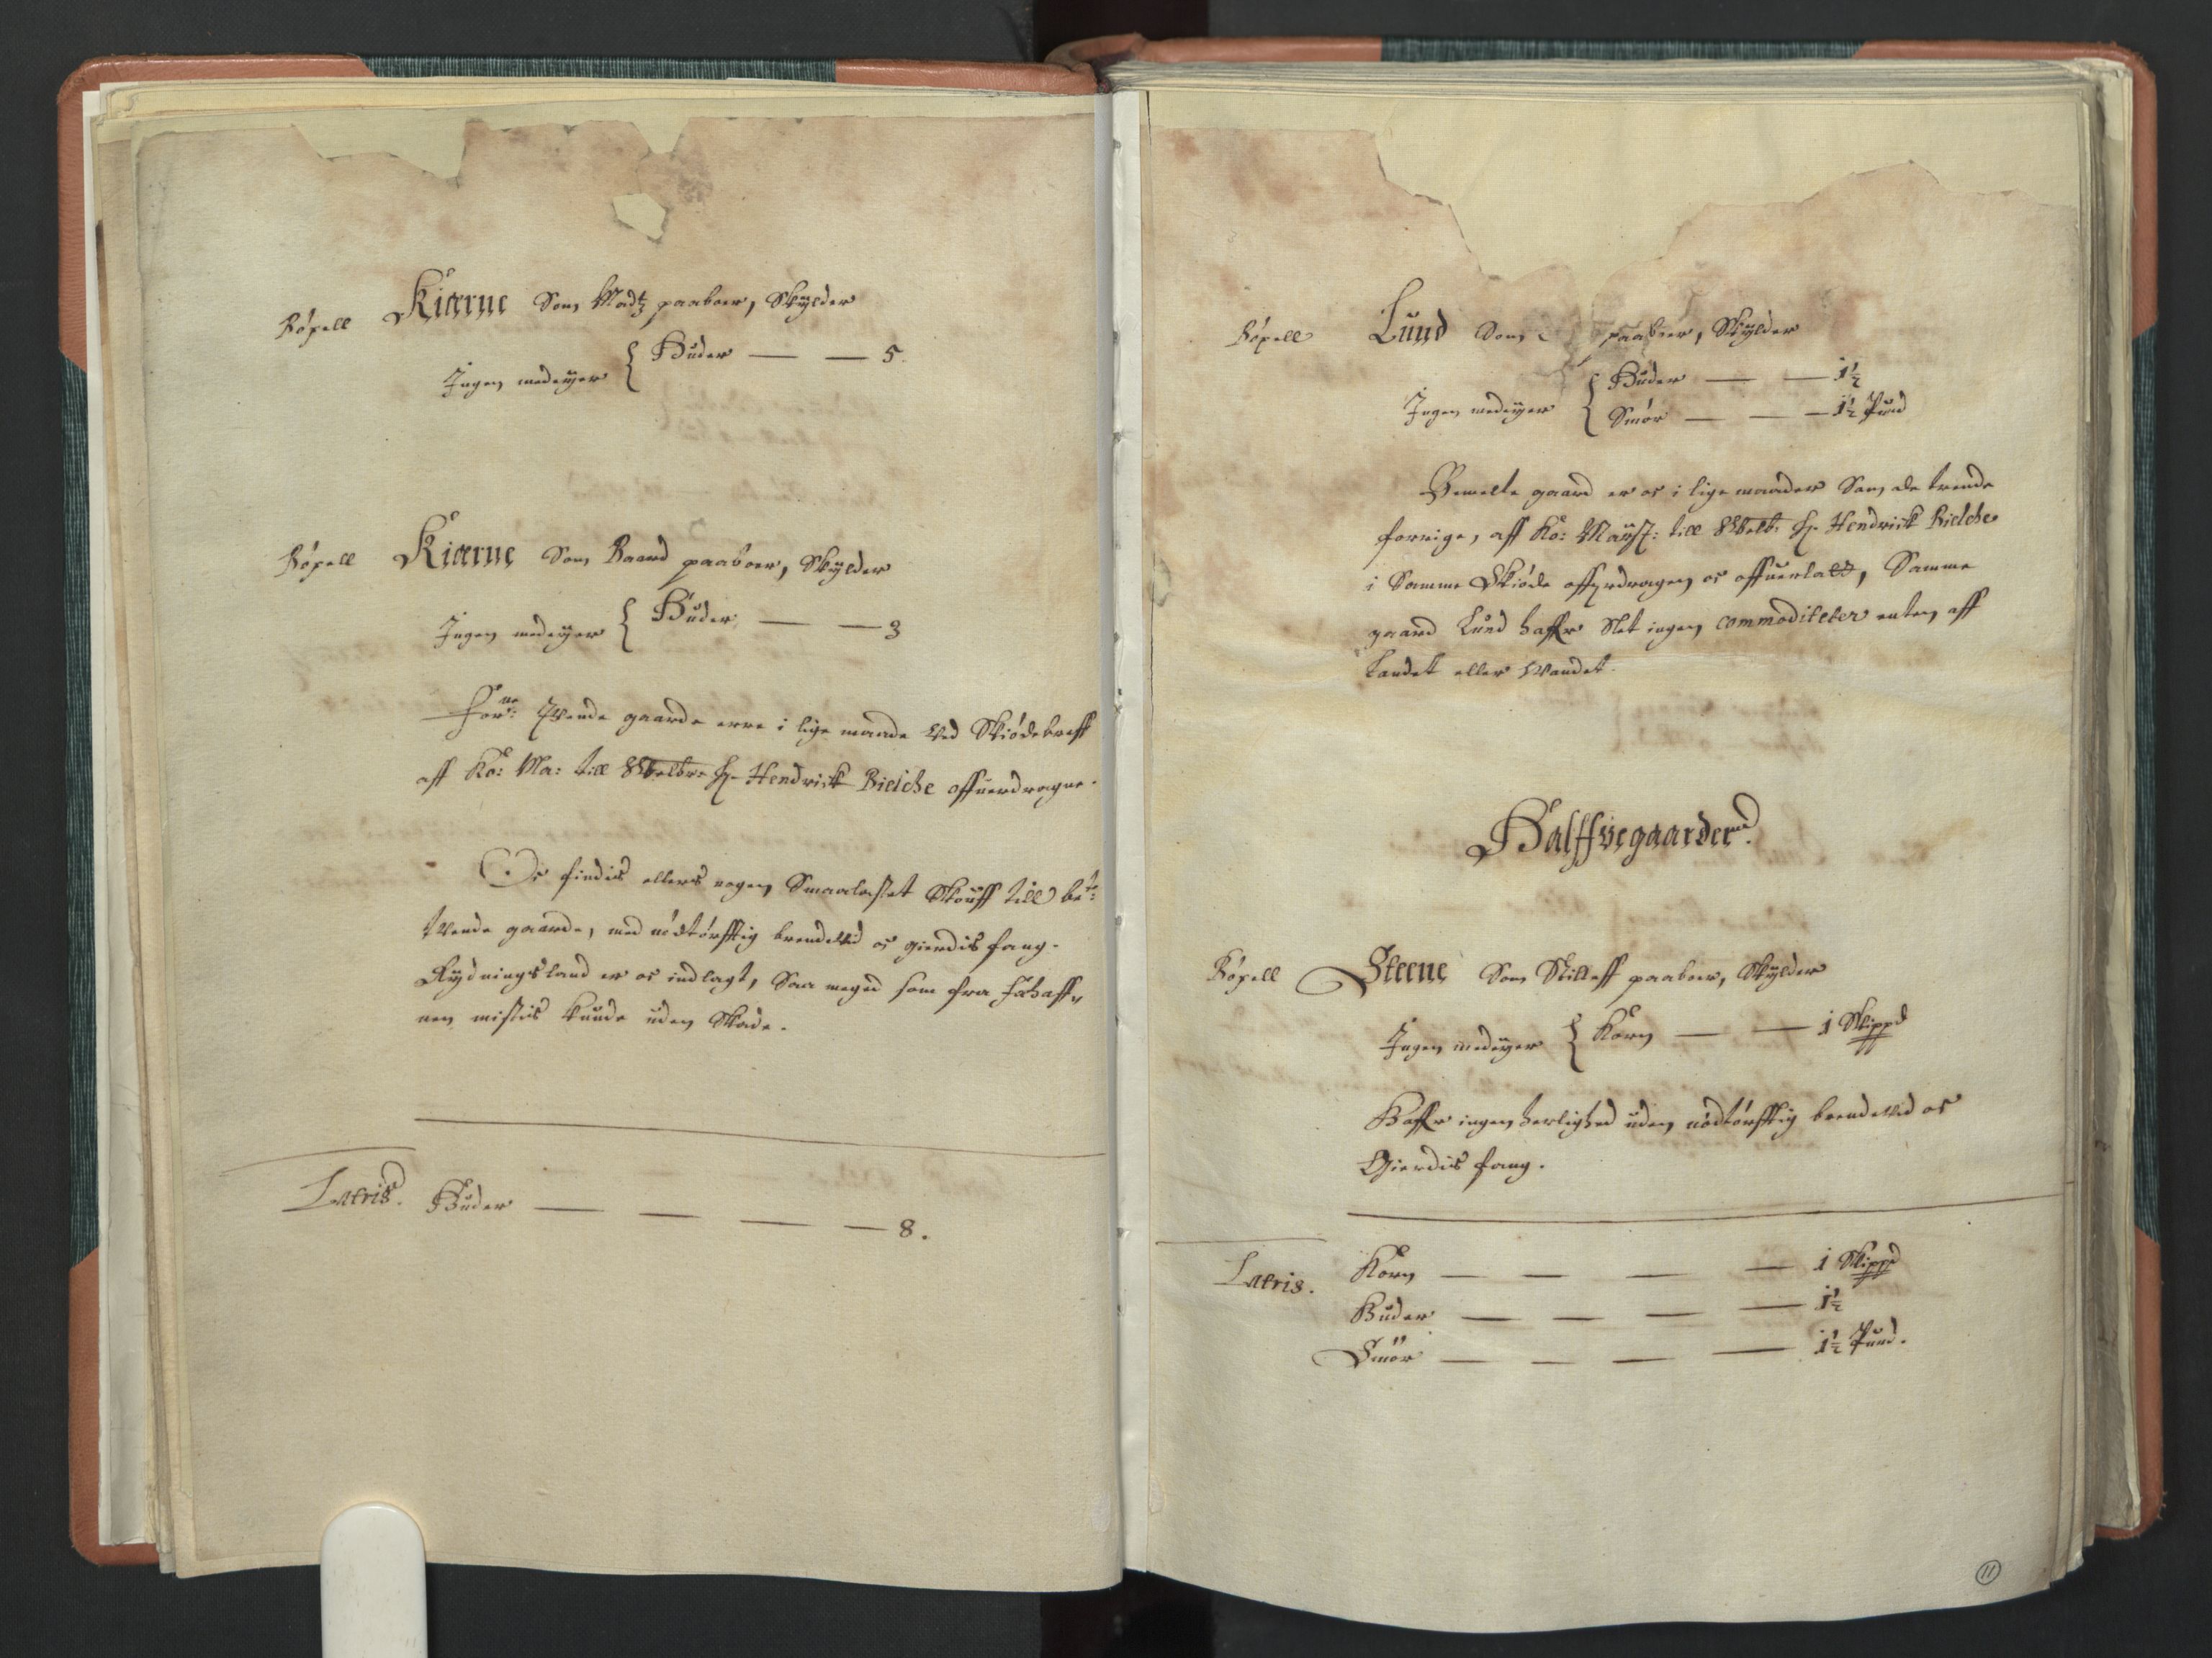 Bóxell Kiærne Som Madtz paaboer, Skÿlder
Ingen medeÿer { Huder — — 5.
Bóxell Kiærne Som Baard paaboer, Skÿlder
Ingen medeÿer { Huder — — 3
For:ne Tvende gaarde erre i lige maade Ved Skiódebreff
aff Ko: Ma: till Welb: Hr Hendrich Bielche offuerdragne.
Der findis ellers nogen Smaalastet Skouff till be:te
tvende gaarde, med nódtórfftig brendeVid oc gierdis fang.
Rÿdningsland er oc indlagt, Saa meget som fra Fæhaff„
nen mistis kunde uden Skade.
Lateris. Huder — — — — 8.
Bóxell Lund Som paaboer, Skÿlder
Ingen medeÿer { Huder — — 1½
Smór — — — 1½ Pund
Bemelte gaard er oc i lige maader Som de trende
forrige, aff Ko: Maÿst: till Welb: Hr Hendrick Bielche
i Samme Skióde offuerdragen oc offuerladt, Samme
gaard Lund haffr Slet ingen commoditeter enten aff
Landet eller Wandet.
Halffvegaarderne.
Bóxell Steene Som Killeff paaboer, Skÿlder
Ingen medeÿer { Korn — — 1 Skippd
Haffr ingen herlighed uden nódtórfftig brendeVid oc
Gierdis fang.
Lateris. Korn — — — — 1 Skippd
Huder — — — — 1½
Smör — — — — 1½ Pund.
11